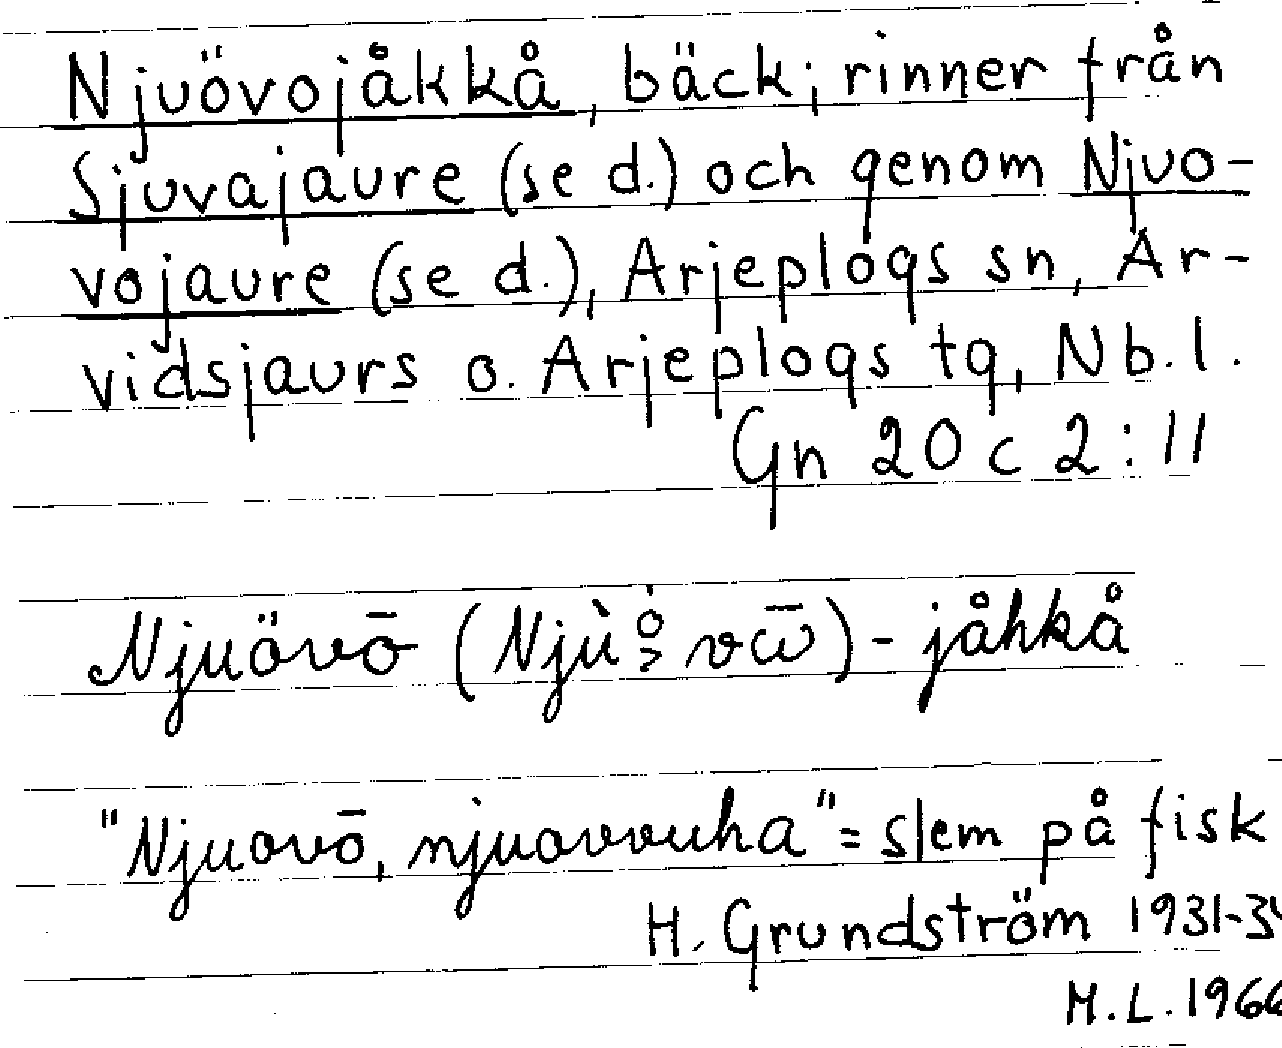 Njuövojåkkå, bäck; rinner från
Sjuvajaure (se d.) och genom Njuo-
vojaure (se d.), Arjeplogs sn, Ar-
vidsjaurs o. Arjeplogs tg, Nb. l.
Gn 20 c 2:11
Njuövō (Njù vω̄)-jåhkå
"Njuovō, njuovvuha" = slem på fisk
H. Grundström 1931-34
M.L. 1966